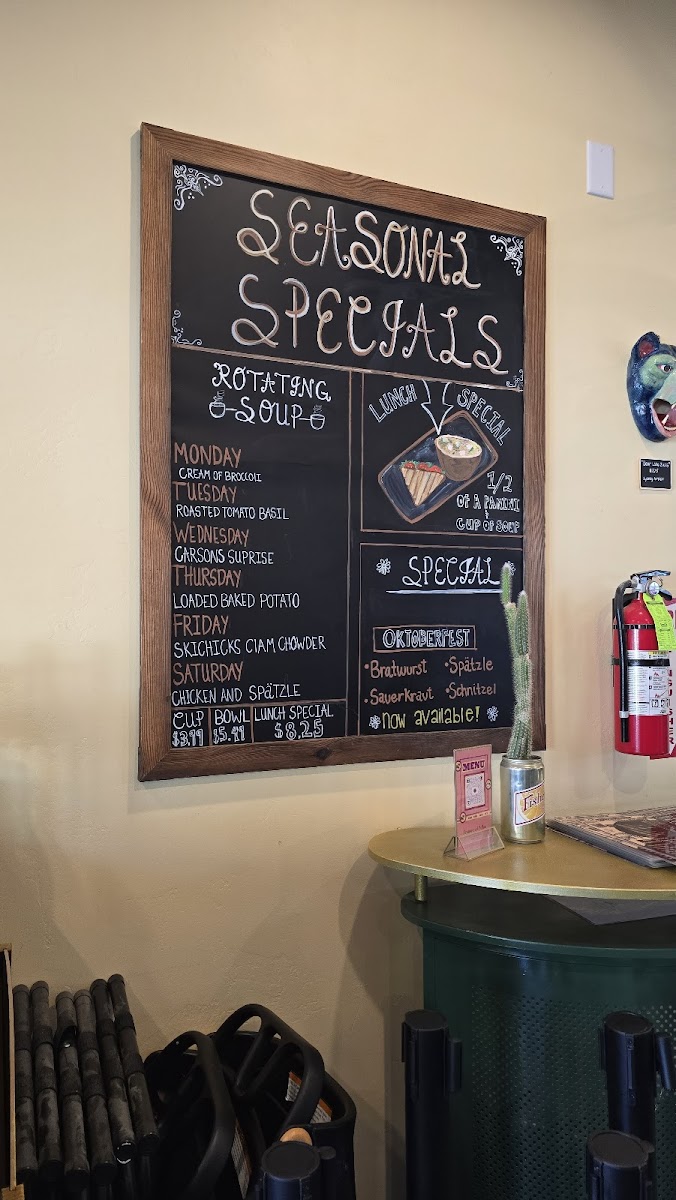 SEASONAL
SPECIALS
ROTATING
SOUP
MONDAY
CREAM OF BROCCOLI
TUESDAY
ROASTED TOMATO BASIL
WEDNESDAY
CARSONS SUPRISE
THURSDAY
LOADED BAKED POTATO
FRIDAY
SKICHICKS CLAM CHOWDER
SATURDAY
CHICKEN AND SPÄTZLE
CUP
$3.99
BOWL
$5.49
LUNCH SPECIAL
$8.25
LUNCH SPECIAL
1/2
OF A PANINI
&
CUP OF SOUP
SPECIAL
OKTOBERFEST
•Bratwurst •Spätzle
•Sauerkraut •Schnitzel
now available!
MENU